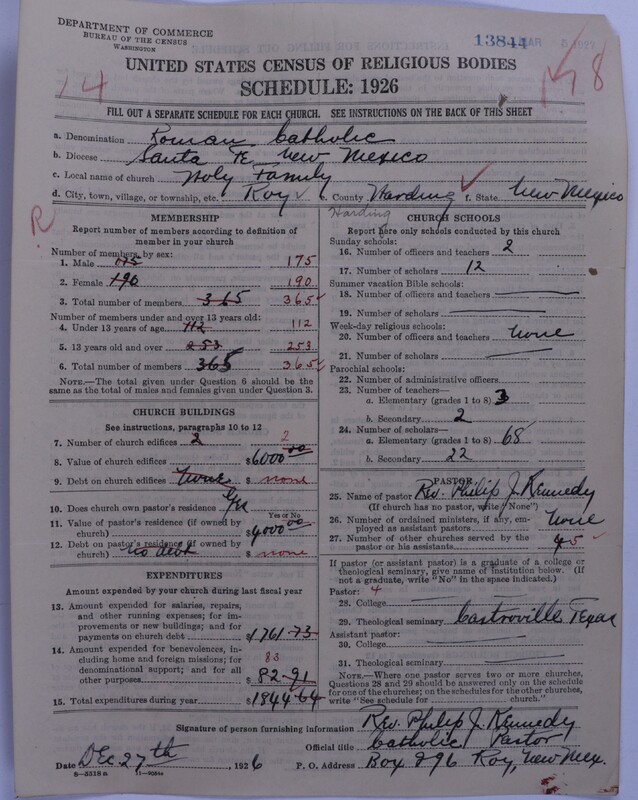 DEPARTMENT OF COMMERCE
BUREAU OF THE CENSUS
WASHINGTON
13844 MAR 5 1927
UNITED STATES CENSUS OF RELIGIOUS BODIES
SCHEDULE: 1926
FILL OUT A SEPARATE SCHEDULE FOR EACH CHURCH. SEE INSTRUCTIONS ON THE BACK OF THIS SHEET
a. Denomination Roman Catholic
b. Diocese Santa Fe, New Mexico
c. Local name of church Holy Family
d. City, town, village, or township, etc. Roy e. County Harding f. State New Mexico
Harding
R
MEMBERSHIP
Report number of members according to definition of member in your church
Number of members by sex:
1. Male 175 175
2. Female 190 190
3. Total number of members 365 365
Number of members under and over 13 years old:
4. Under 13 years of age 112 112
5. 13 years old and over 253 253
6. Total number of members 365 365
NOTE.—The total given under Question 6 should be the same as the total of males and females given under Question 3.
CHURCH BUILDINGS
See instructions, paragraphs 10 to 12
7. Number of church edifices 2 2
8. Value of church edifices $6000.00
9. Debt on church edifices none $ none
Yes or No
10. Does church own pastor's residence Yes
11. Value of pastor's residence (if owned by church) $4000.00
12. Debt on pastor's residence (if owned by church) no debt $ none
EXPENDITURES
Amount expended by your church during last fiscal year
13. Amount expended for salaries, repairs, and other running expenses; for improvements or new buildings; and for payments on church debt $1761-73
14. Amount expended for benevolences, including home and foreign missions; for denominational support; and for all other purposes 83 $82-91
15. Total expenditures during year $1844-64
CHURCH SCHOOLS
Report here only schools conducted by this church
Sunday schools:
16. Number of officers and teachers 2
17. Number of scholars 12
Summer vacation Bible schools:
18. Number of officers and teachers
19. Number of scholars
Week-day religious schools:
20. Number of officers and teachers None
21. Number of scholars
Parochial schools:
22. Number of administrative officers
23. Number of teachers—
a. Elementary (grades 1 to 8) 3
b. Secondary 2
24. Number of scholars—
a. Elementary (grades 1 to 8) 68
b. Secondary 22
PASTOR
25. Name of pastor Rev. Philip J. Kennedy
(If church has no pastor, write "None")
26. Number of ordained ministers, if any, employed as assistant pastors None
27. Number of other churches served by the pastor or his assistants 5
If pastor (or assistant pastor) is a graduate of a college or theological seminary, give name of institution below. (If not a graduate, write "No" in the space indicated.)
Pastor: 4
28. College
29. Theological seminary Castroville Texas
Assistant pastor:
30. College
31. Theological seminary
NOTE.—Where one pastor serves two or more churches, Questions 28 and 29 should be answered only on the schedule for one of the churches; on the schedules for the other churches, write "See schedule for church."
Signature of person furnishing information Rev. Philip J. Kennedy
Official title Catholic Pastor
Date Dec. 27th, 1926 P. O. Address Box 296 Roy, New Mex.
8—3518 a